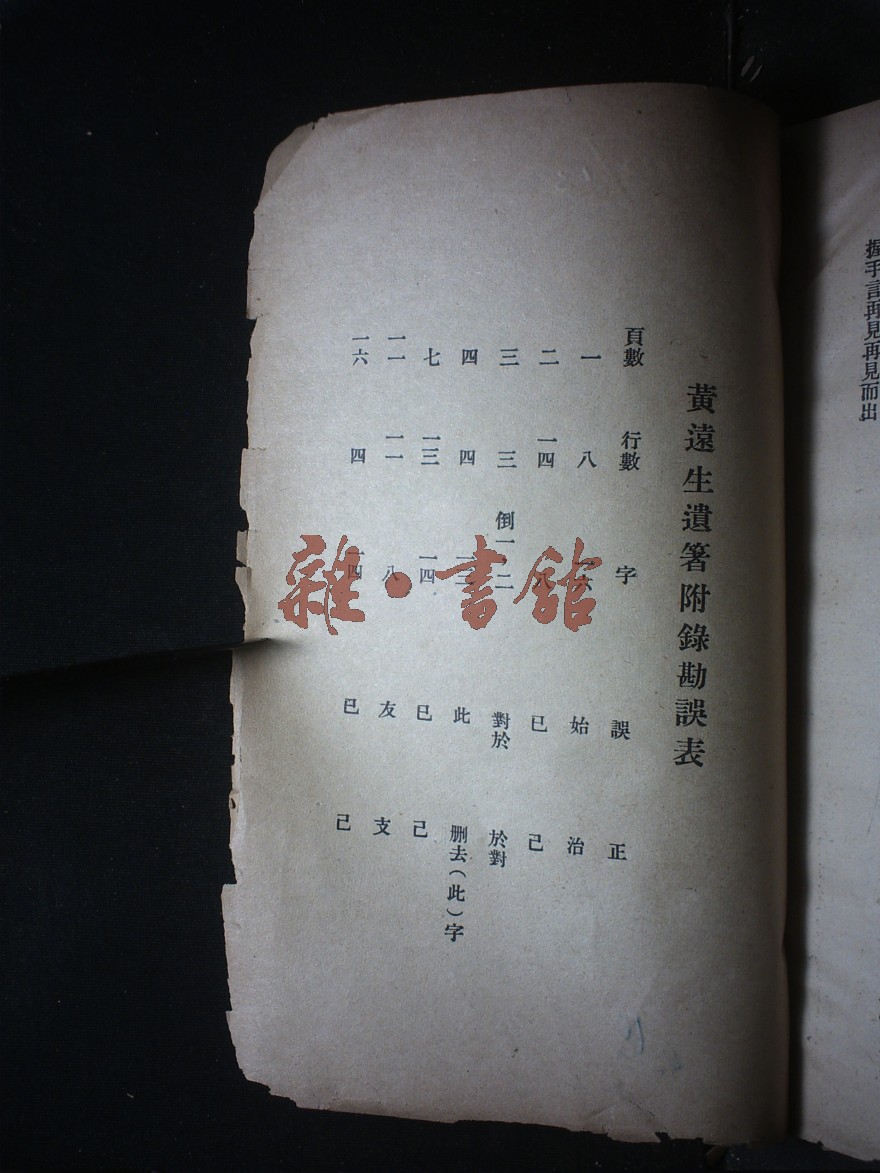 握手言再見再見而出
黃遠生遺箸附錄勘誤表
頁數 行數 字 誤 正
一 八 一六 始 治
二 一四 八 已 己
三 三 倒一二 對於 於對
四 四 此 刪去(此)字
七 一三 一四 已 己
一一 一一 八 友 支
一六 四 一四 已 己
雜·書館